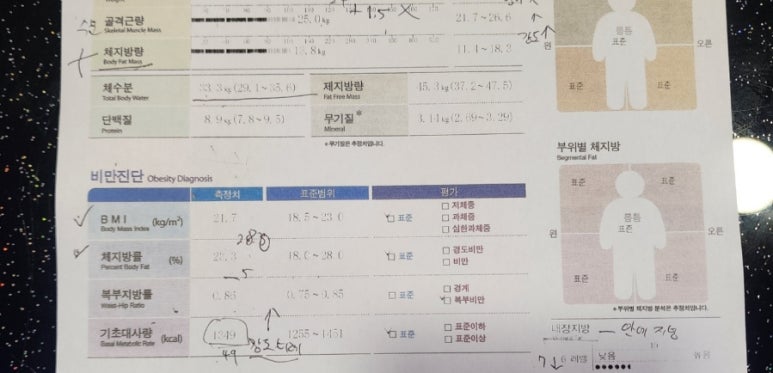 골격근량
Skeletal Muscle Mass
25.0kg
21.7 ~ 26.6
체지방량
Body Fat Mass
13.8kg
11.4 ~ 18.3
체수분 33.3kg (29.1 ~ 35.6) 제지방량 45.3kg (37.2 ~ 47.5)
Total Body Water Fat Free Mass
단백질 8.9kg (7.8 ~ 9.5) 무기질* 3.14kg (2.69 ~ 3.29)
Protein Mineral
* 무기질은 추정치입니다.
비만진단 Obesity Diagnosis
측정치 표준범위 평가
BMI (kg/m²) 21.7 18.5 ~ 23.0 ☑ 표준 □ 저체중
Body Mass Index □ 과체중
□ 심한과체중
체지방률 (%) 23.3 18.0 ~ 28.0 ☑ 표준 □ 경도비만
Percent Body Fat □ 비만
복부지방률 0.86 0.75 ~ 0.85 □ 표준 □ 경계
Waist-Hip Ratio ☑ 복부비만
기초대사량 (kcal) 1349 1255 ~ 1451 ☑ 표준 □ 표준이하
Basal Metabolic Rate □ 표준이상
49
원 표준 오른
표준 표준
부위별 체지방
Segmental Fat
표준 표준
원 몸통 오른
표준
표준 표준
* 부위별 체지방 분석은 추정치입니다.
내장지방
7↓ 6 레벨 낮음 10 높음